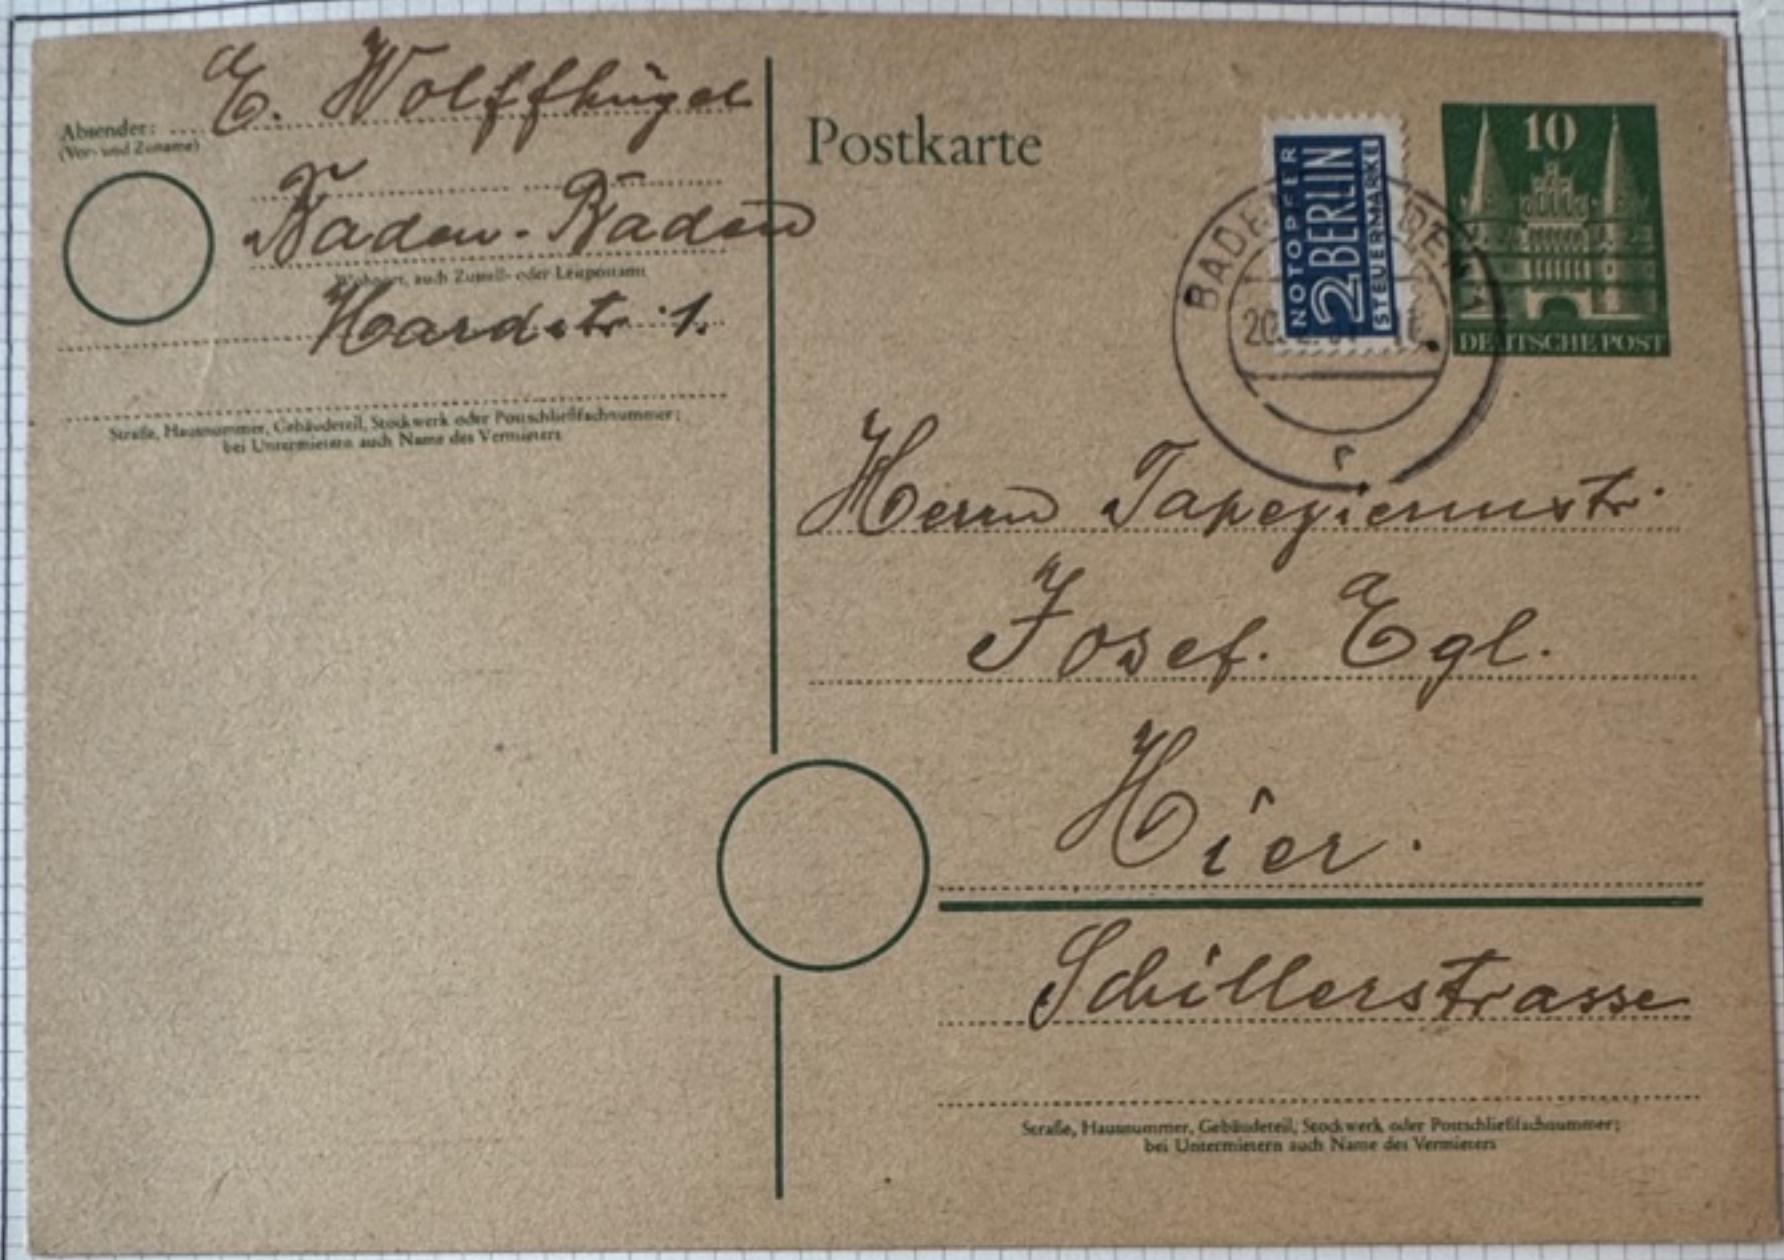 E. Wolffhügel
Absender:
(Vor- und Zuname)
Baden-Baden
Wohnort, auch Zustell- oder Leitpostamt
Hardstr. 1.
Straße, Hausnummer, Gebäudeteil, Stockwerk oder Postschließfachnummer;
bei Untermietern auch Name des Vermieters
Postkarte
NOTOPFER
2 BERLIN
STEUERMARKE
10
DEUTSCHE POST
BADEN-BADEN
20.
r
Herrn Tapeziermstr.
Josef. Egl.
Hier.
Schillerstrasse
Straße, Hausnummer, Gebäudeteil, Stockwerk oder Postschließfachnummer;
bei Untermietern auch Name des Vermieters